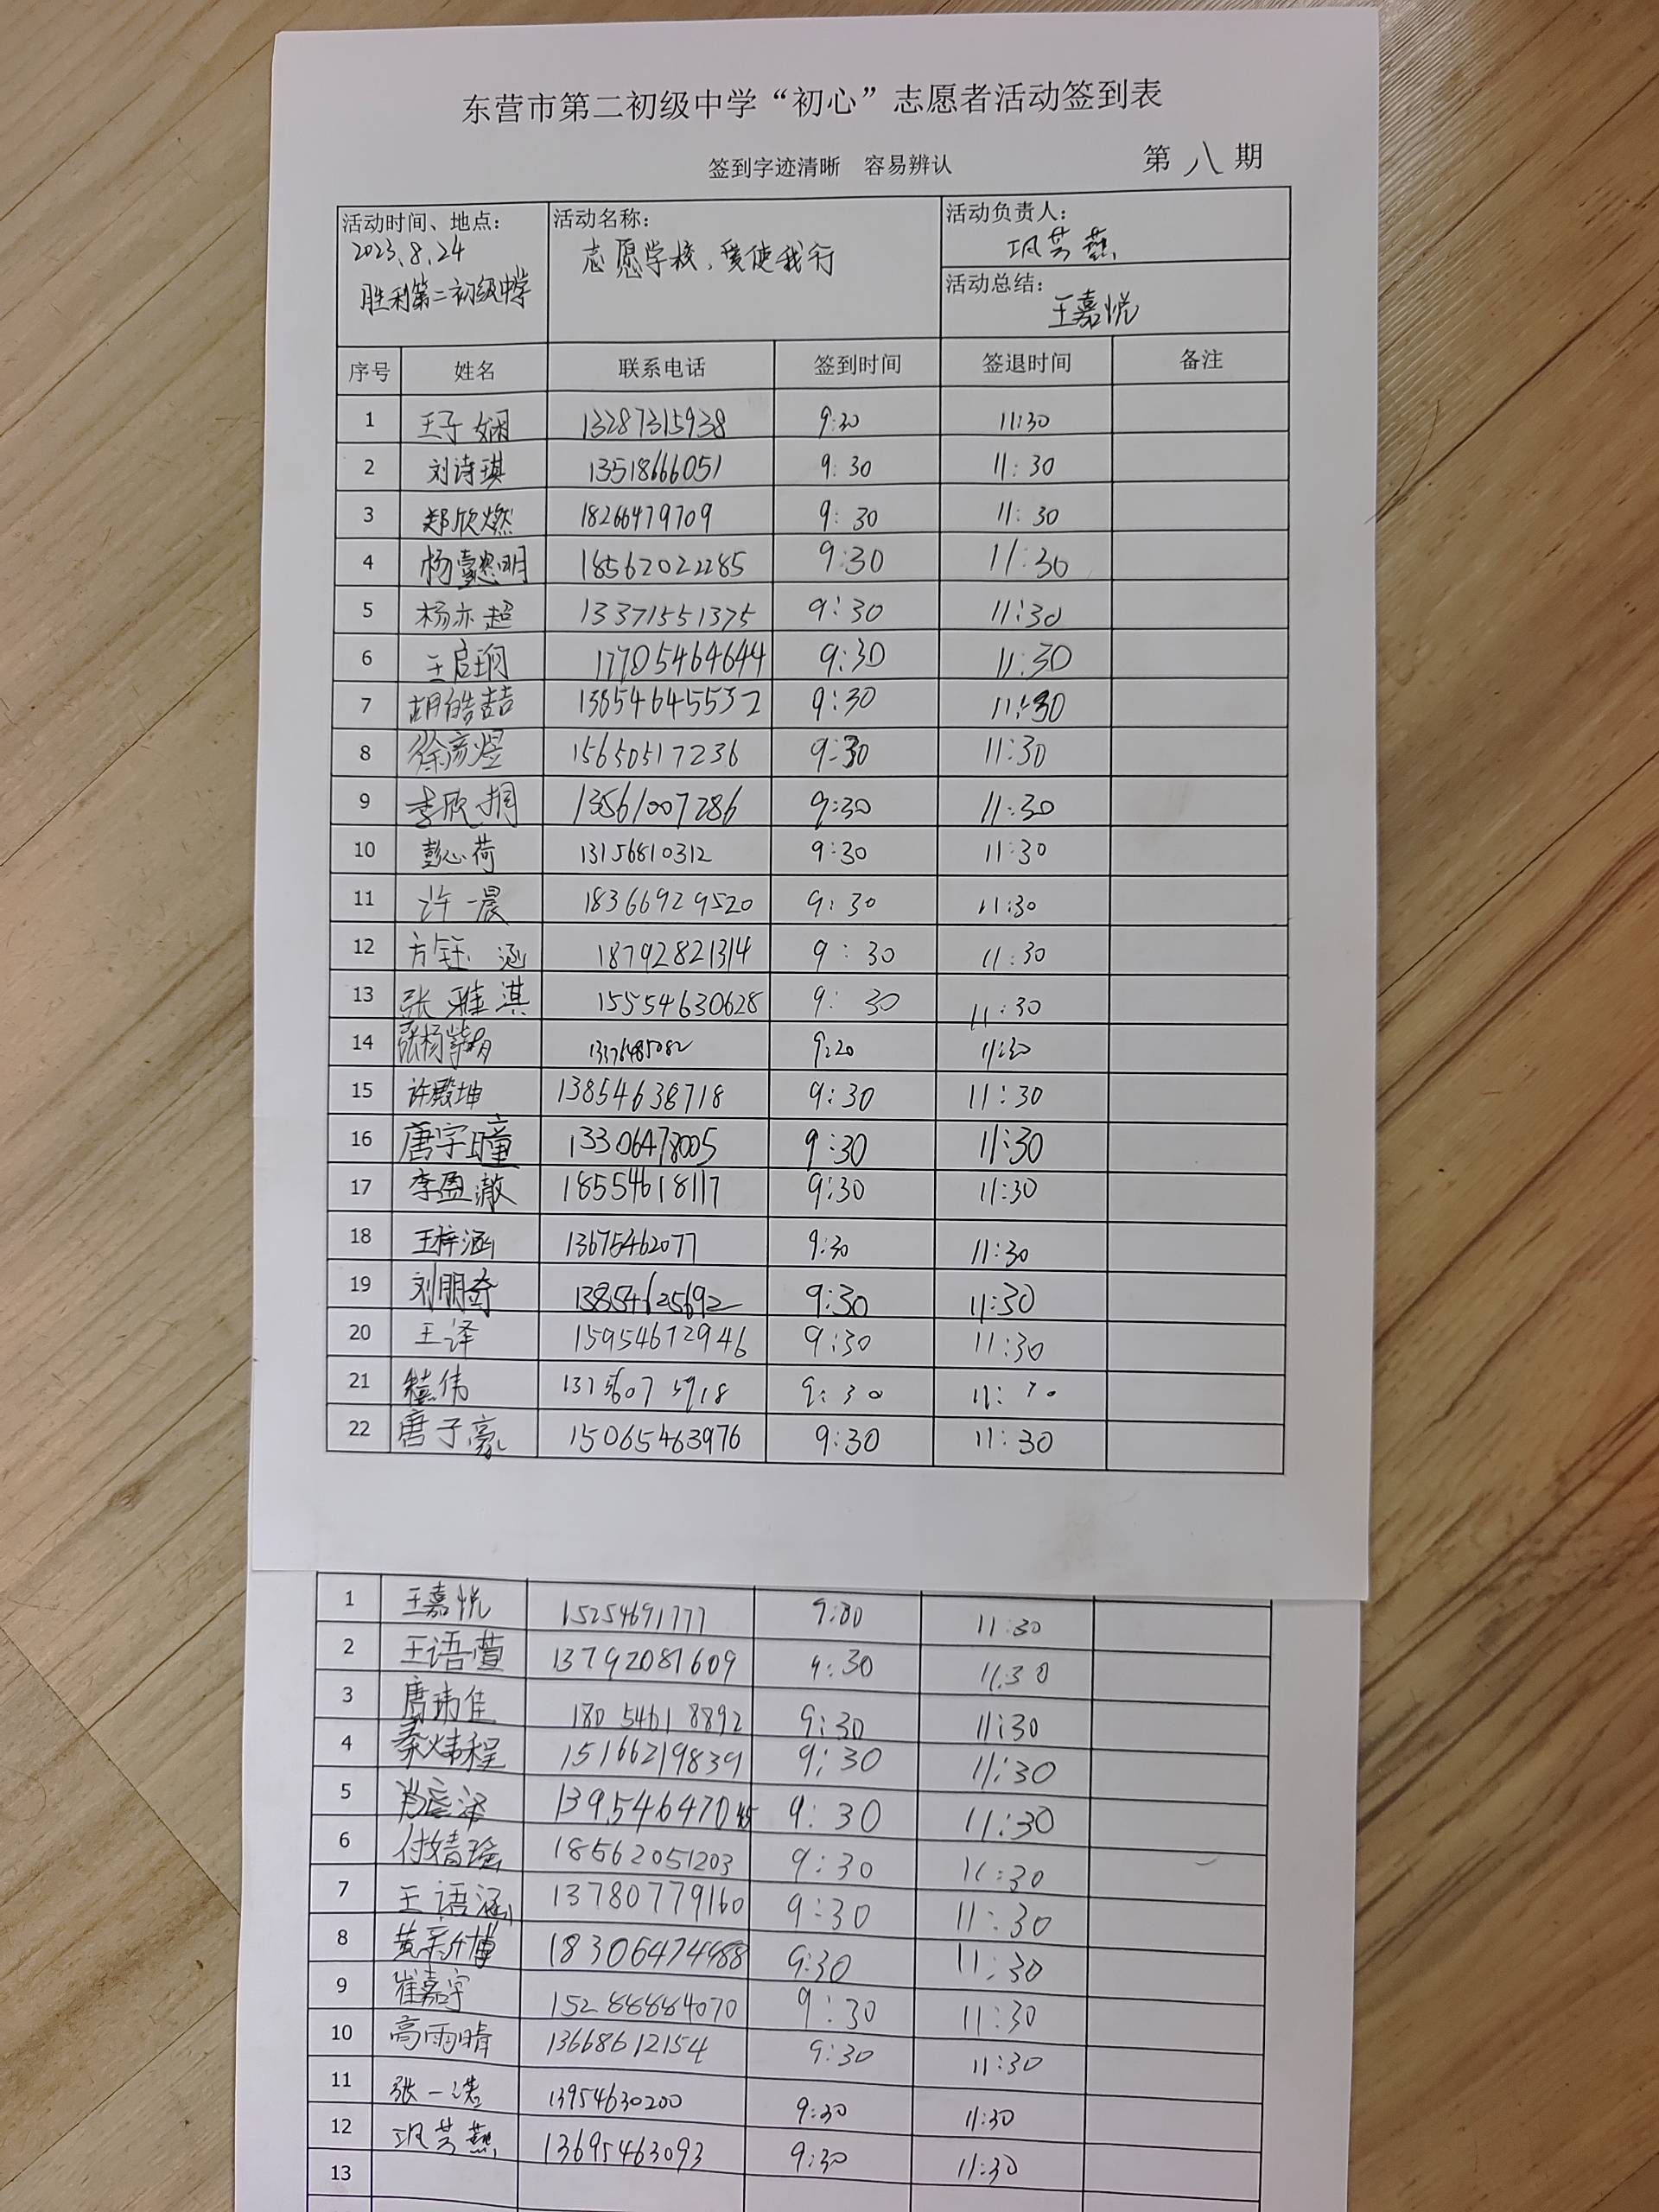 东营市第二初级中学“初心”志愿者活动签到表
签到字迹清晰 容易辨认 第八期
活动时间、地点： 活动名称： 活动负责人：
2023.8.24 志愿学校，爱使我行 巩芳燕
胜利第二初级中学 活动总结：
王嘉悦
序号 姓名 联系电话 签到时间 签退时间 备注
1 王子娴 13287315938 9:30 11:30
2 刘诗琪 13518666051 9:30 11:30
3 郑欣燃 18266479709 9:30 11:30
4 杨懿明 18562022285 9:30 11:30
5 杨亦超 13371551375 9:30 11:30
6 王启珂 17705464644 9:30 11:30
7 胡皓喆 13854645532 9:30 11:30
8 徐彦煜 15650517236 9:30 11:30
9 李欣桐 13561007286 9:30 11:30
10 彭心荷 13156810312 9:30 11:30
11 许一晨 18366929520 9:30 11:30
12 方钰涵 18792821314 9:30 11:30
13 张雅淇 15554630628 9:30 11:30
14 张杨 9:20 11:30
15 许殿坤 13854638718 9:30 11:30
16 唐宇瞳 13306478005 9:30 11:30
17 李盈澈 18554618117 9:30 11:30
18 王梓涵 13675462077 9:30 11:30
19 刘朋奇 13854625692 9:30 11:30
20 王译 15954672946 9:30 11:30
21 伟 13156075918 9:30 11:30
22 唐子豪 15065463976 9:30 11:30
1 王嘉悦 15254691777 9:30 11:30
2 王语萱 13792081609 9:30 11:30
3 唐玮佳 18054618892 9:30 11:30
4 秦炜程 15166219839 9:30 11:30
5 肖 13954647045 9:30 11:30
6 付婧瑜 18562051203 9:30 11:30
7 王语涵 13780779160 9:30 11:30
8 黄亲博 18306474488 9:30 11:30
9 崔嘉宇 15288884070 9:30 11:30
10 高雨晴 13668612154 9:30 11:30
11 张一诺 13954630200 9:30 11:30
12 巩芳燕 13695463093 9:30 11:30
13